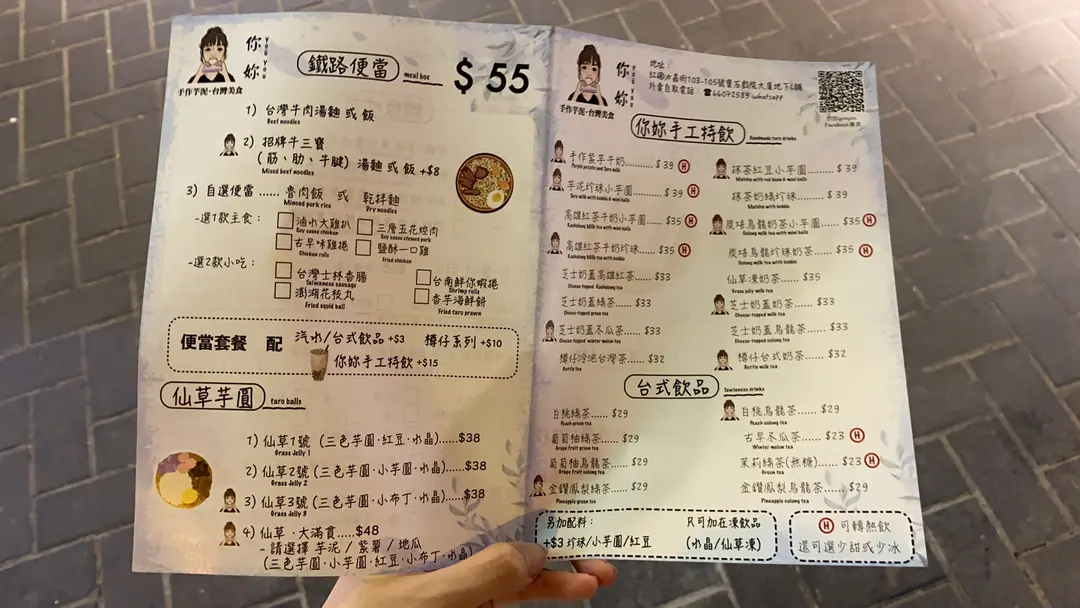 你妳
YOU YOU
手作芋泥·台灣美食
鐵路便當 meal box $55
1) 台灣牛肉湯麵 或 飯
Beef noodles
2) 招牌牛三寶
(筋、肋、牛腱) 湯麵 或 飯 +$8
Mixed beef noodles
3) 自選便當 ...... 魯肉飯 或 乾拌麵
Minced pork rice Dry noodles
-選1款主食: 滷水大雞扒 三層五花焢肉
Soy sauce chicken Soy sauce stewed pork
古早味雞捲 鹽酥一口雞
Chicken rolls Fried chicken
-選2款小吃: 台灣士林香腸 台南鮮你蝦捲
Taiwanese sausage Shrimp rolls
澎湖花枝丸 香芋海鮮餅
Fried squid ball Fried taro prawn
便當套餐 配 汽水/台式飲品 +$3 樽仔系列 +$10
你妳手工特飲 +$15
仙草芋圓 taro balls
1) 仙草1號 (三色芋圓·紅豆·水晶).....$38
Grass Jelly 1
2) 仙草2號 (三色芋圓·小芋圓·水晶).....$38
Grass Jelly 2
3) 仙草3號 (三色芋圓·小布丁·水晶).....$38
Grass Jelly 3
4) 仙草·大滿貫.....$48
- 請選擇 芋泥 / 紫薯 / 地瓜
(三色芋圓·小芋圓·紅豆·小布丁·水晶)
你妳
YOU YOU
手作芋泥·台灣美食
地址:
紅磡曲街103-105號寶石戲院大廈地下L舖
外賣自取電話: ☎66072589 whatsapp
Facebook專頁
你妳手工特飲 Handmade taro drinks
手作紫芋牛奶............$39 H
Purple potato and Taro milk
芋泥珍珠小芋圓..........$39 H
Taro milk with bubble & mini balls
高雄紅茶牛奶小芋圓......$35 H
Kaohsiung Milk tea with mini balls
高雄紅茶牛奶珍珠......$35 H
Kaohsiung Milk tea with bubble
芝士奶蓋高雄紅茶......$33
Cheese-topped Kaohsiung tea
芝士奶蓋綠茶......$33
Cheese-topped green tea
芝士奶蓋冬瓜茶......$33
Cheese-topped winter melon tea
樽仔冷泡台灣茶......$32
Bottle tea
抹茶紅豆小芋圓......$39
Matcha with red bean & mini balls
抹茶奶綠珍珠......$39
Matcha with bubble
炭培烏龍奶茶小芋圓......$35 H
Oolong milk tea with mini balls
炭培烏龍珍珠奶茶......$35 H
Oolong milk tea with bubble
仙草凍奶茶......$35
Grass jelly milk tea
芝士奶蓋奶茶......$33
Cheese-topped milk tea
芝士奶蓋烏龍茶......$33
Cheese-topped oolong tea
樽仔台式奶茶......$32
Bottle milk tea
台式飲品 Taiwanese drinks
白桃綠茶......$29
Peach green tea
葡萄柚綠茶......$29
Grape fruit green tea
葡萄柚烏龍茶......$29
Grape fruit oolong tea
金鑽鳳梨綠茶......$29
Pineapple green tea
白桃烏龍茶......$29
Peach oolong tea
古早冬瓜茶......$23 H
Winter melon tea
茉莉綠茶(無糖)......$23 H
Green tea
金鑽鳳梨烏龍茶......$29
Pineapple oolong tea
另加配料: 只可加在凍飲品
+$3 珍珠/小芋圓/紅豆 (水晶/仙草凍)
H 可轉熱飲
還可選少甜或少冰